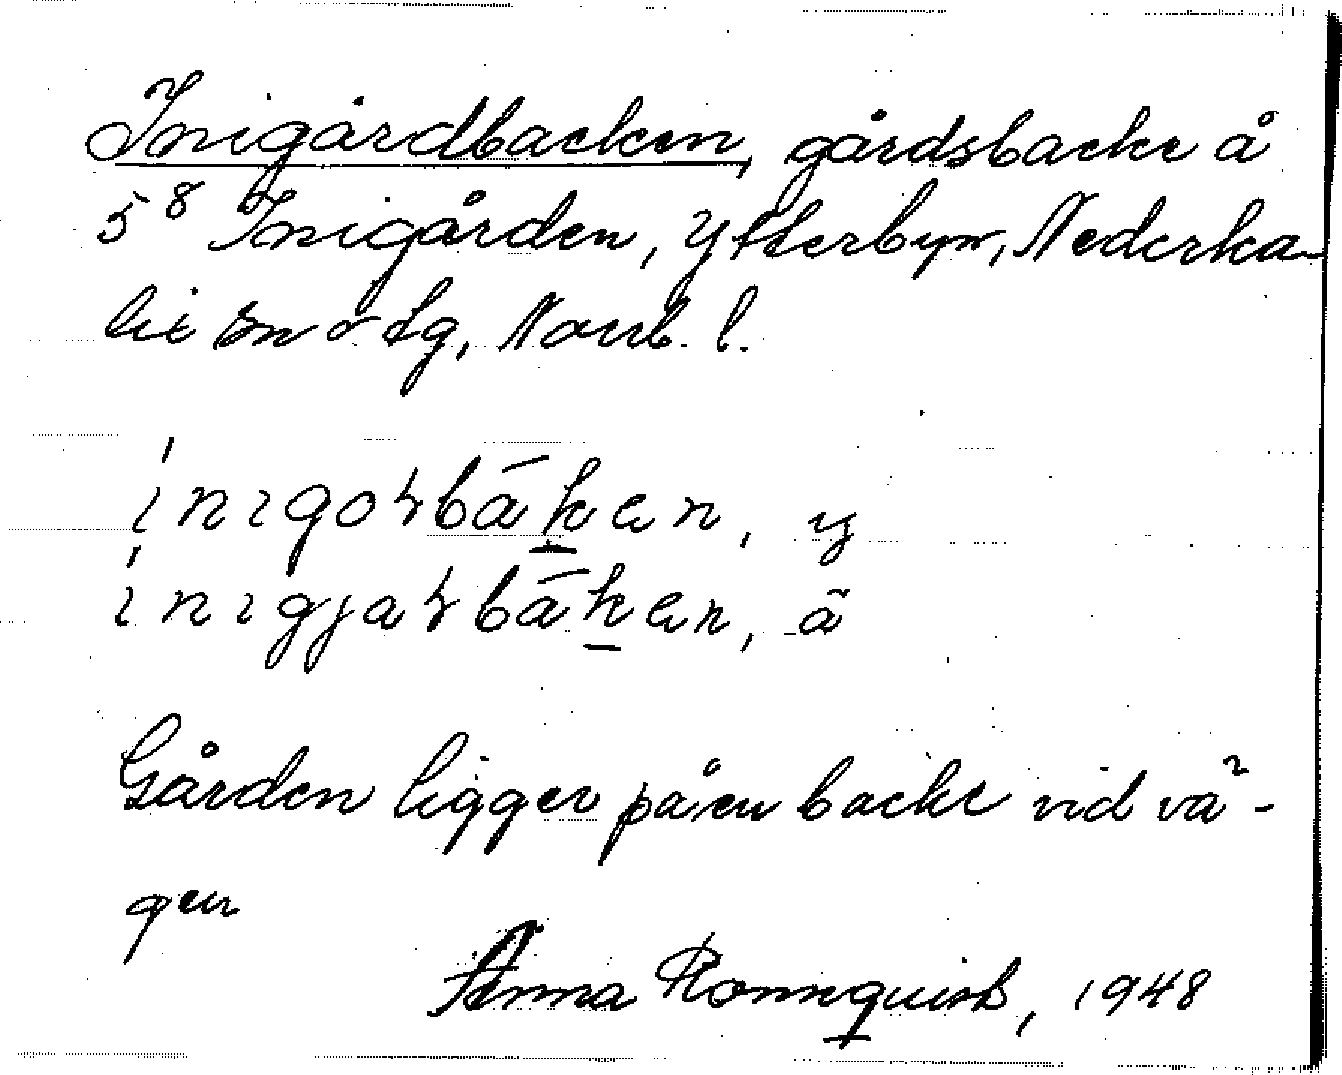 Inigårdbacken, gårdsbacke å
5⁸ Inigården, Ytterbyn, Nederka-
lix sn o tg, Norrb. l.
inigoɽbāken, y
inigjaɽbāken, ä
Gården ligger på en backe vid vä-
gen
Anna Rönnquist, 1948